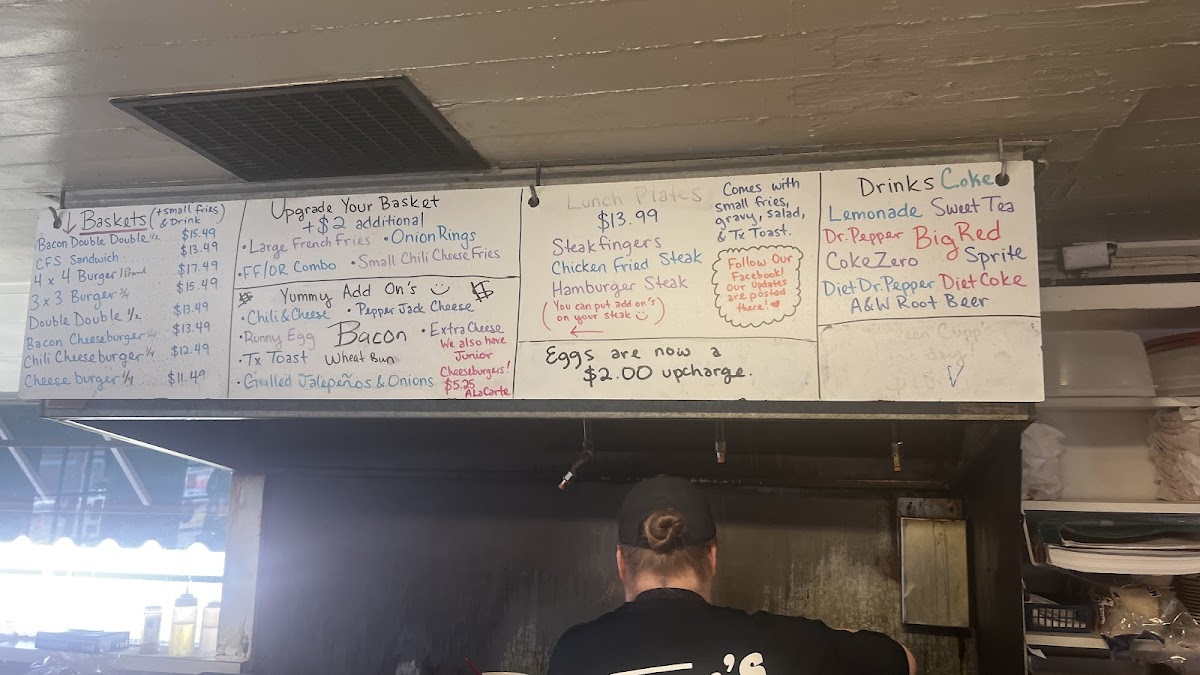 Baskets (+small fries & Drink)
Bacon Double Double 1/2 $15.49
CFS Sandwich $13.49
4 x 4 Burger $17.49
3 x 3 Burger 3/4 $15.49
Double Double 1/2 $13.49
Bacon Cheeseburger $13.49
Chili Cheeseburger 1/4 $12.49
Cheese burger 1/4 $11.49
Upgrade Your Basket
+$2 additional
•Large French Fries •Onion Rings
•FF/OR Combo •Small Chili Cheese Fries
Yummy Add On's
•Chili & Cheese •Pepper Jack Cheese
•Runny Egg Bacon •Extra Cheese
•Tx Toast Wheat Bun
•Grilled Jalepeños & Onions
We also have
Junior
Cheeseburgers!
$5.25
ALaCarte
Lunch Plates
$13.99
Steakfingers
Chicken Fried Steak
Hamburger Steak
(You can put add on's
on your steak)
Comes with
small fries,
gravy, salad,
& Tx Toast.
Follow Our
Facebook!
Our Updates
are posted
there!
Eggs are now a
$2.00 upcharge.
Drinks Coke
Lemonade Sweet Tea
Dr. Pepper Big Red
Coke Zero Sprite
Diet Dr. Pepper Diet Coke
A&W Root Beer
day
's